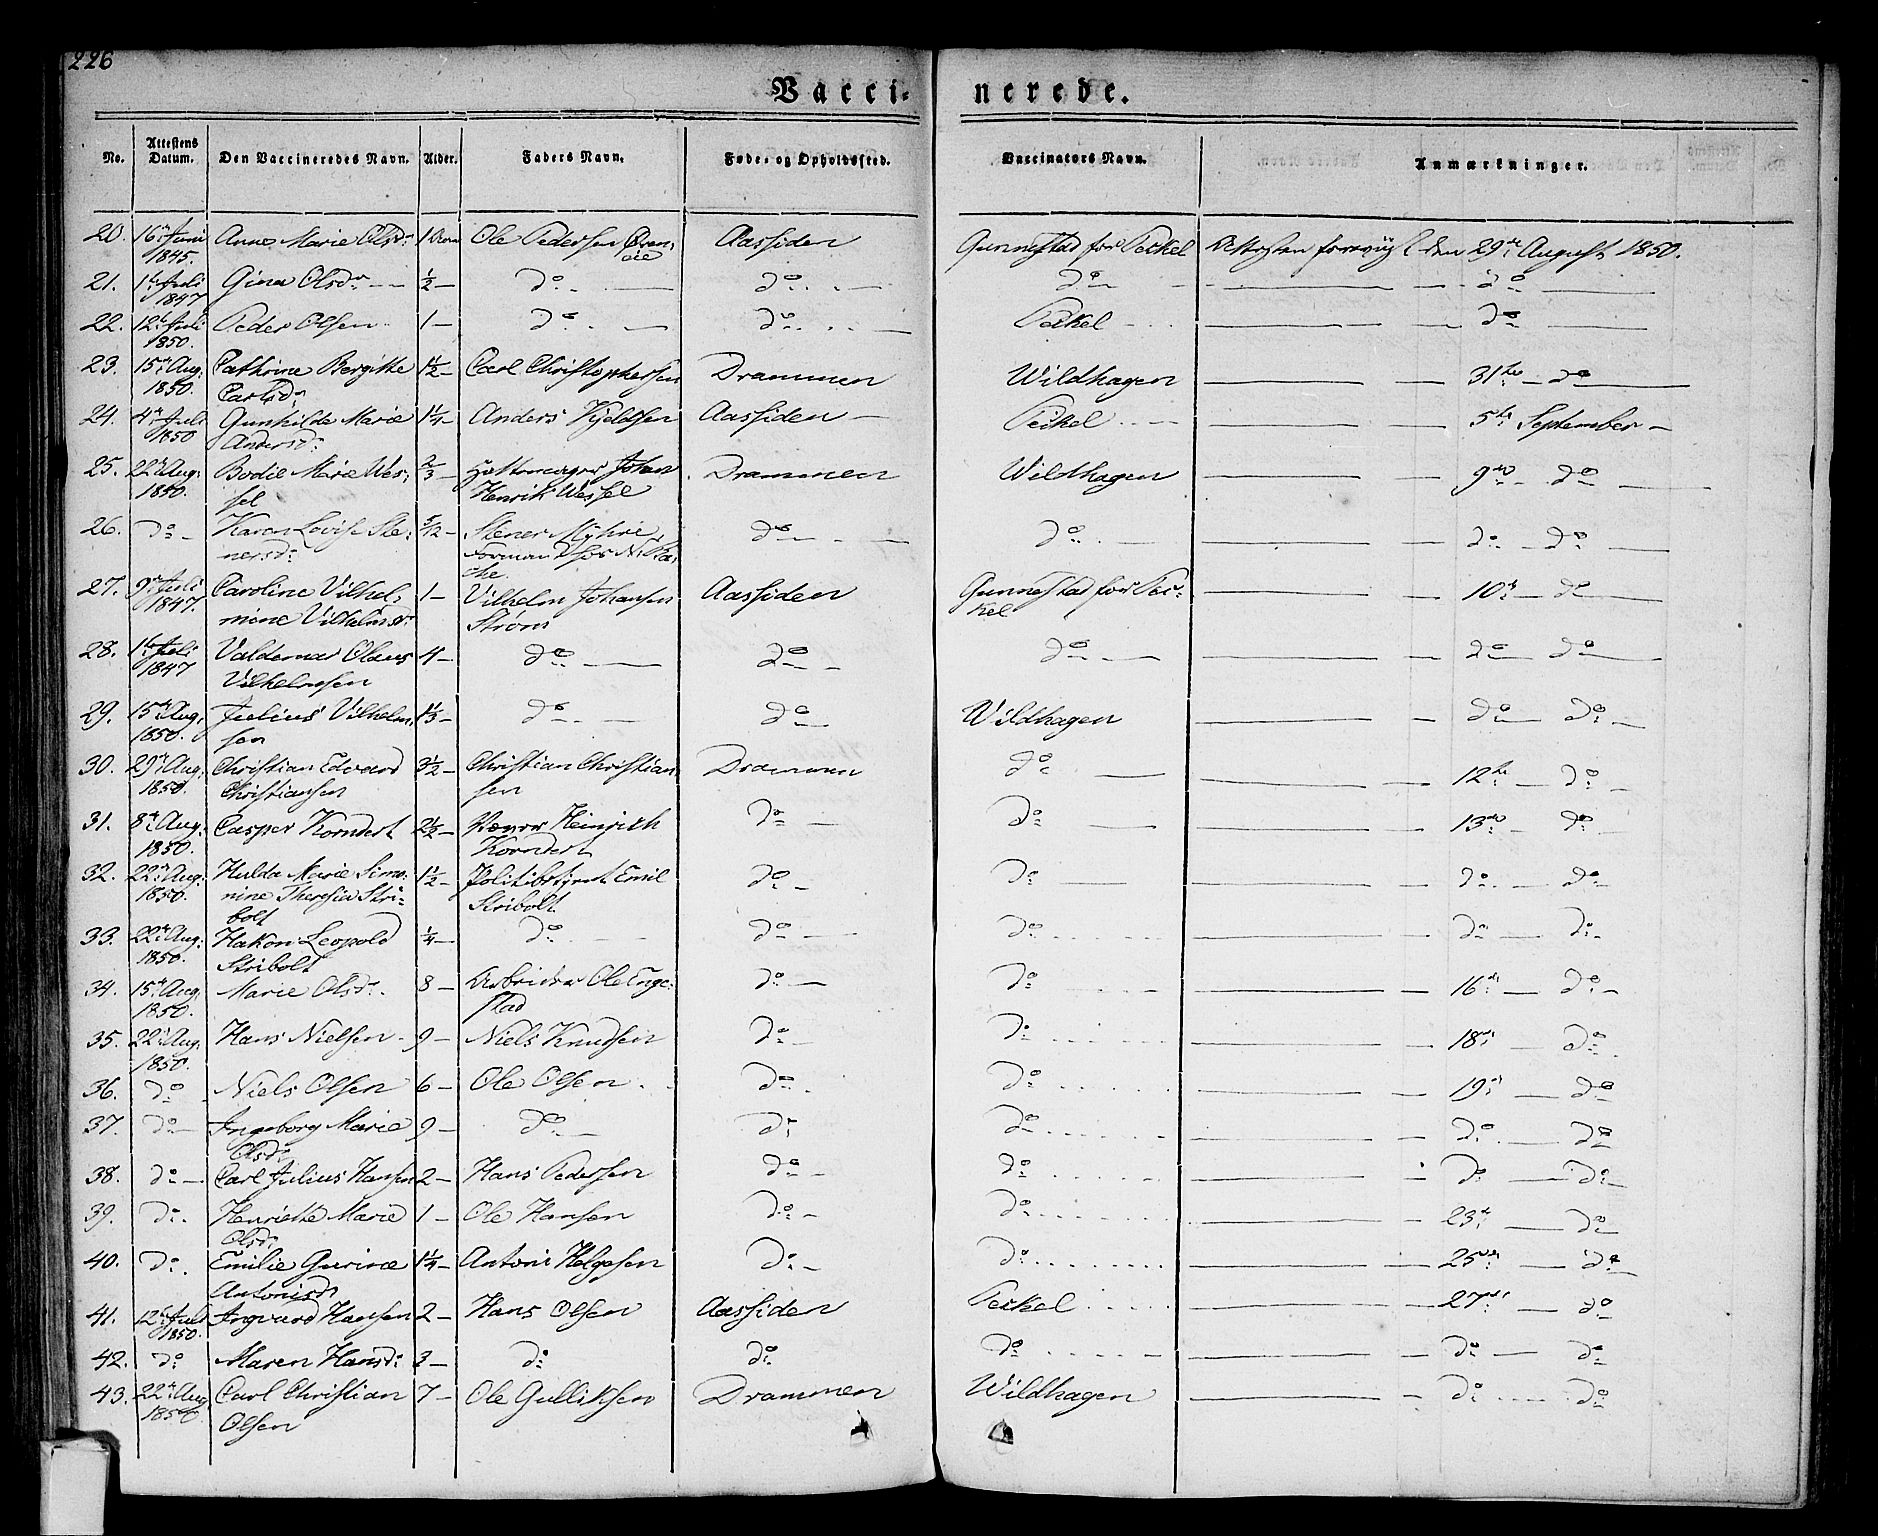 226
Vacci- nerede.
No. Attestens Datum. Den Vaccineredes Navn. Alder. Faders Navn. Føde- og Opholdssted. Vaccinators Navn. Anmærkninger.
20. 16de Juni 1845. Anne Marie Olsdr: 1 Ole Pedersen Aassiden Gunnestad for Peckel Attesten forevist den 29de August 1850.
21. 1ste Juli 1847 Gina Olsdr: ½ — do — do — do — — do —
22. 12te Juli 1850. Peder Olsen 1 — do — do — Peckel — do —
23. 15de Aug: 1850. Cathrine Bergitte Carlsdr: 1½ — Carl Christophersen Drammen Wildhagen — 31te — do —
24. 4de Juli 1850 Gunhilde Marie Andersdr: 1¼ — Anders Kjeldsen Aassiden — Peckel — 5te September —
25. 22de Aug: 1850. Bodil Marie Wessel ⅔ — Hattemager Johan Henrik Wessel Drammen Wildhagen — 9de — do —
26. do — Karen Lovise Stenersdr: 5/12 — Stener Myhre, Formand hos N. do — do — — do — do —
27. 9de Juli 1847. Caroline Vilhelmine Vilhelmsdr: 1 — Vilhelm Johansen Strøm Aassiden Gunnestad for Peckel — 10de — do —
28. 1ste Juli 1847 Valdemar Olaus Vilhelmsen 4 — do — do — do — — do — do —
29. 15de Aug: 1850. Julius Vilhelmsen 1⅓ — do — do — Wildhagen — do — do —
30. 29de Aug: 1850. Christian Edvard Christiansen 3½ — Christian Christiansen Drammen do — — 12te — do —
31. 8de Aug: 1850. Casper Korndert 2½ — Heinrich Korndert do — do — — 13de — do —
32. 22de Aug: 1850. Hulda Marie Simonine Theresia Stribolt 1½ — Emil Stribolt do — do — — do — do —
33. 22de Aug: 1850. Hakon Leopold Stribolt ¼ — do — do — do — — do — do —
34. 15de Aug 1850. Marie Olsdr: 8 — Arbeider Ole Engestad do — do — — 16de — do —
35. 22de Aug. 1850. Hans Nielsen 9 — Niels Knudsen do — do — — 18de — do —
36. do — Niels Olsen 6 — Ole Olsen do — do — — 19de — do —
37. do — Ingeborg Marie Olsdr: 9 — do — do do — — do — do
38. do — Carl Julius Hansen 2 — Hans Pedersen do — do — — do — do —
39. do Henriette Marie Olsdr: 1 — Ole Hansen do — do — — 23de — do
40. do Emilie Gurine Antonisdr: 1¼ — Antoni Helgesen do — do — — 25de — do
41. 12te Juli 1850. Ingvard Hansen 2 — Hans Olsen Aassiden Peckel — 27de — do
42. do Maren Hansdr: 3 — do do do — — do — do
43. 22de Aug 1850 Carl Christian Olsen 7 — Ole Gulliksen Drammen Wildhagen — do — do